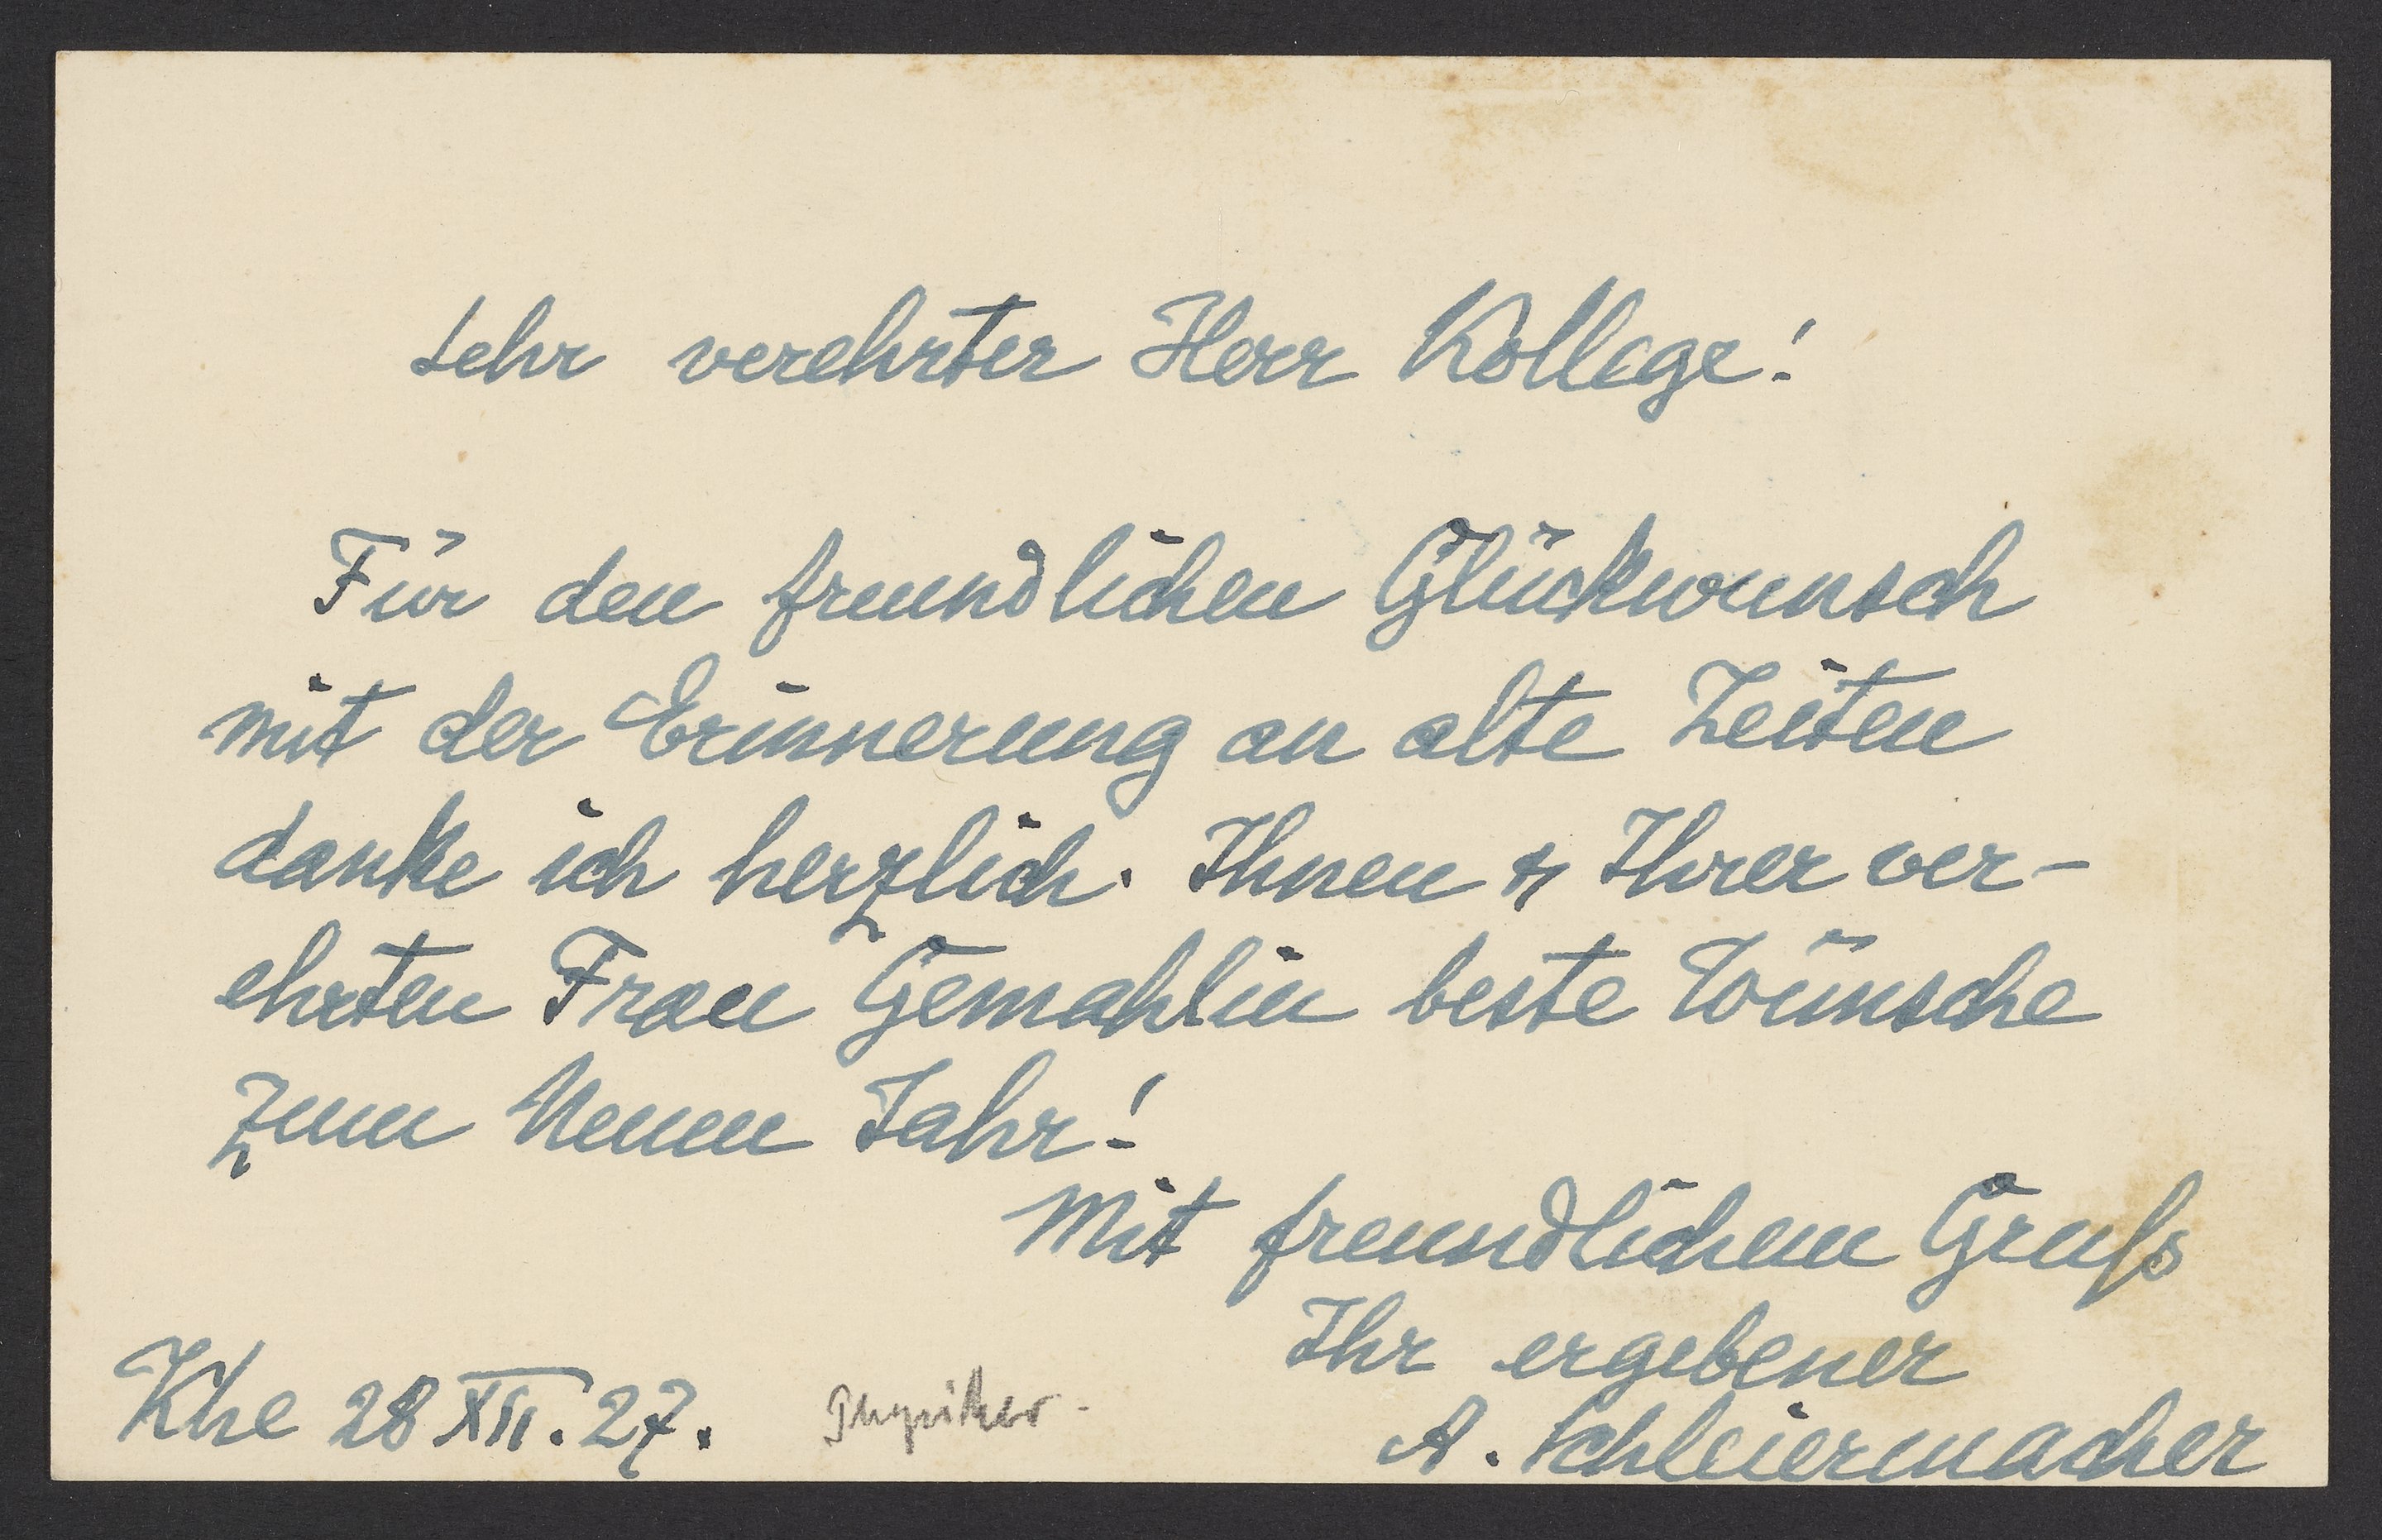 Sehr verehrter Herr Kollege!
Für den freundlichen Glückwunsch
mit der Erinnerung an alte Zeiten
danke ich herzlich. Ihnen & Ihrer ver-
ehrten Frau Gemahlin beste Wünsche
zum Neuen Jahr!
Mit freundlichem Gruß
Ihr ergebener
A. Schleiermacher
Khe 28 XII. 27.
Physiker.